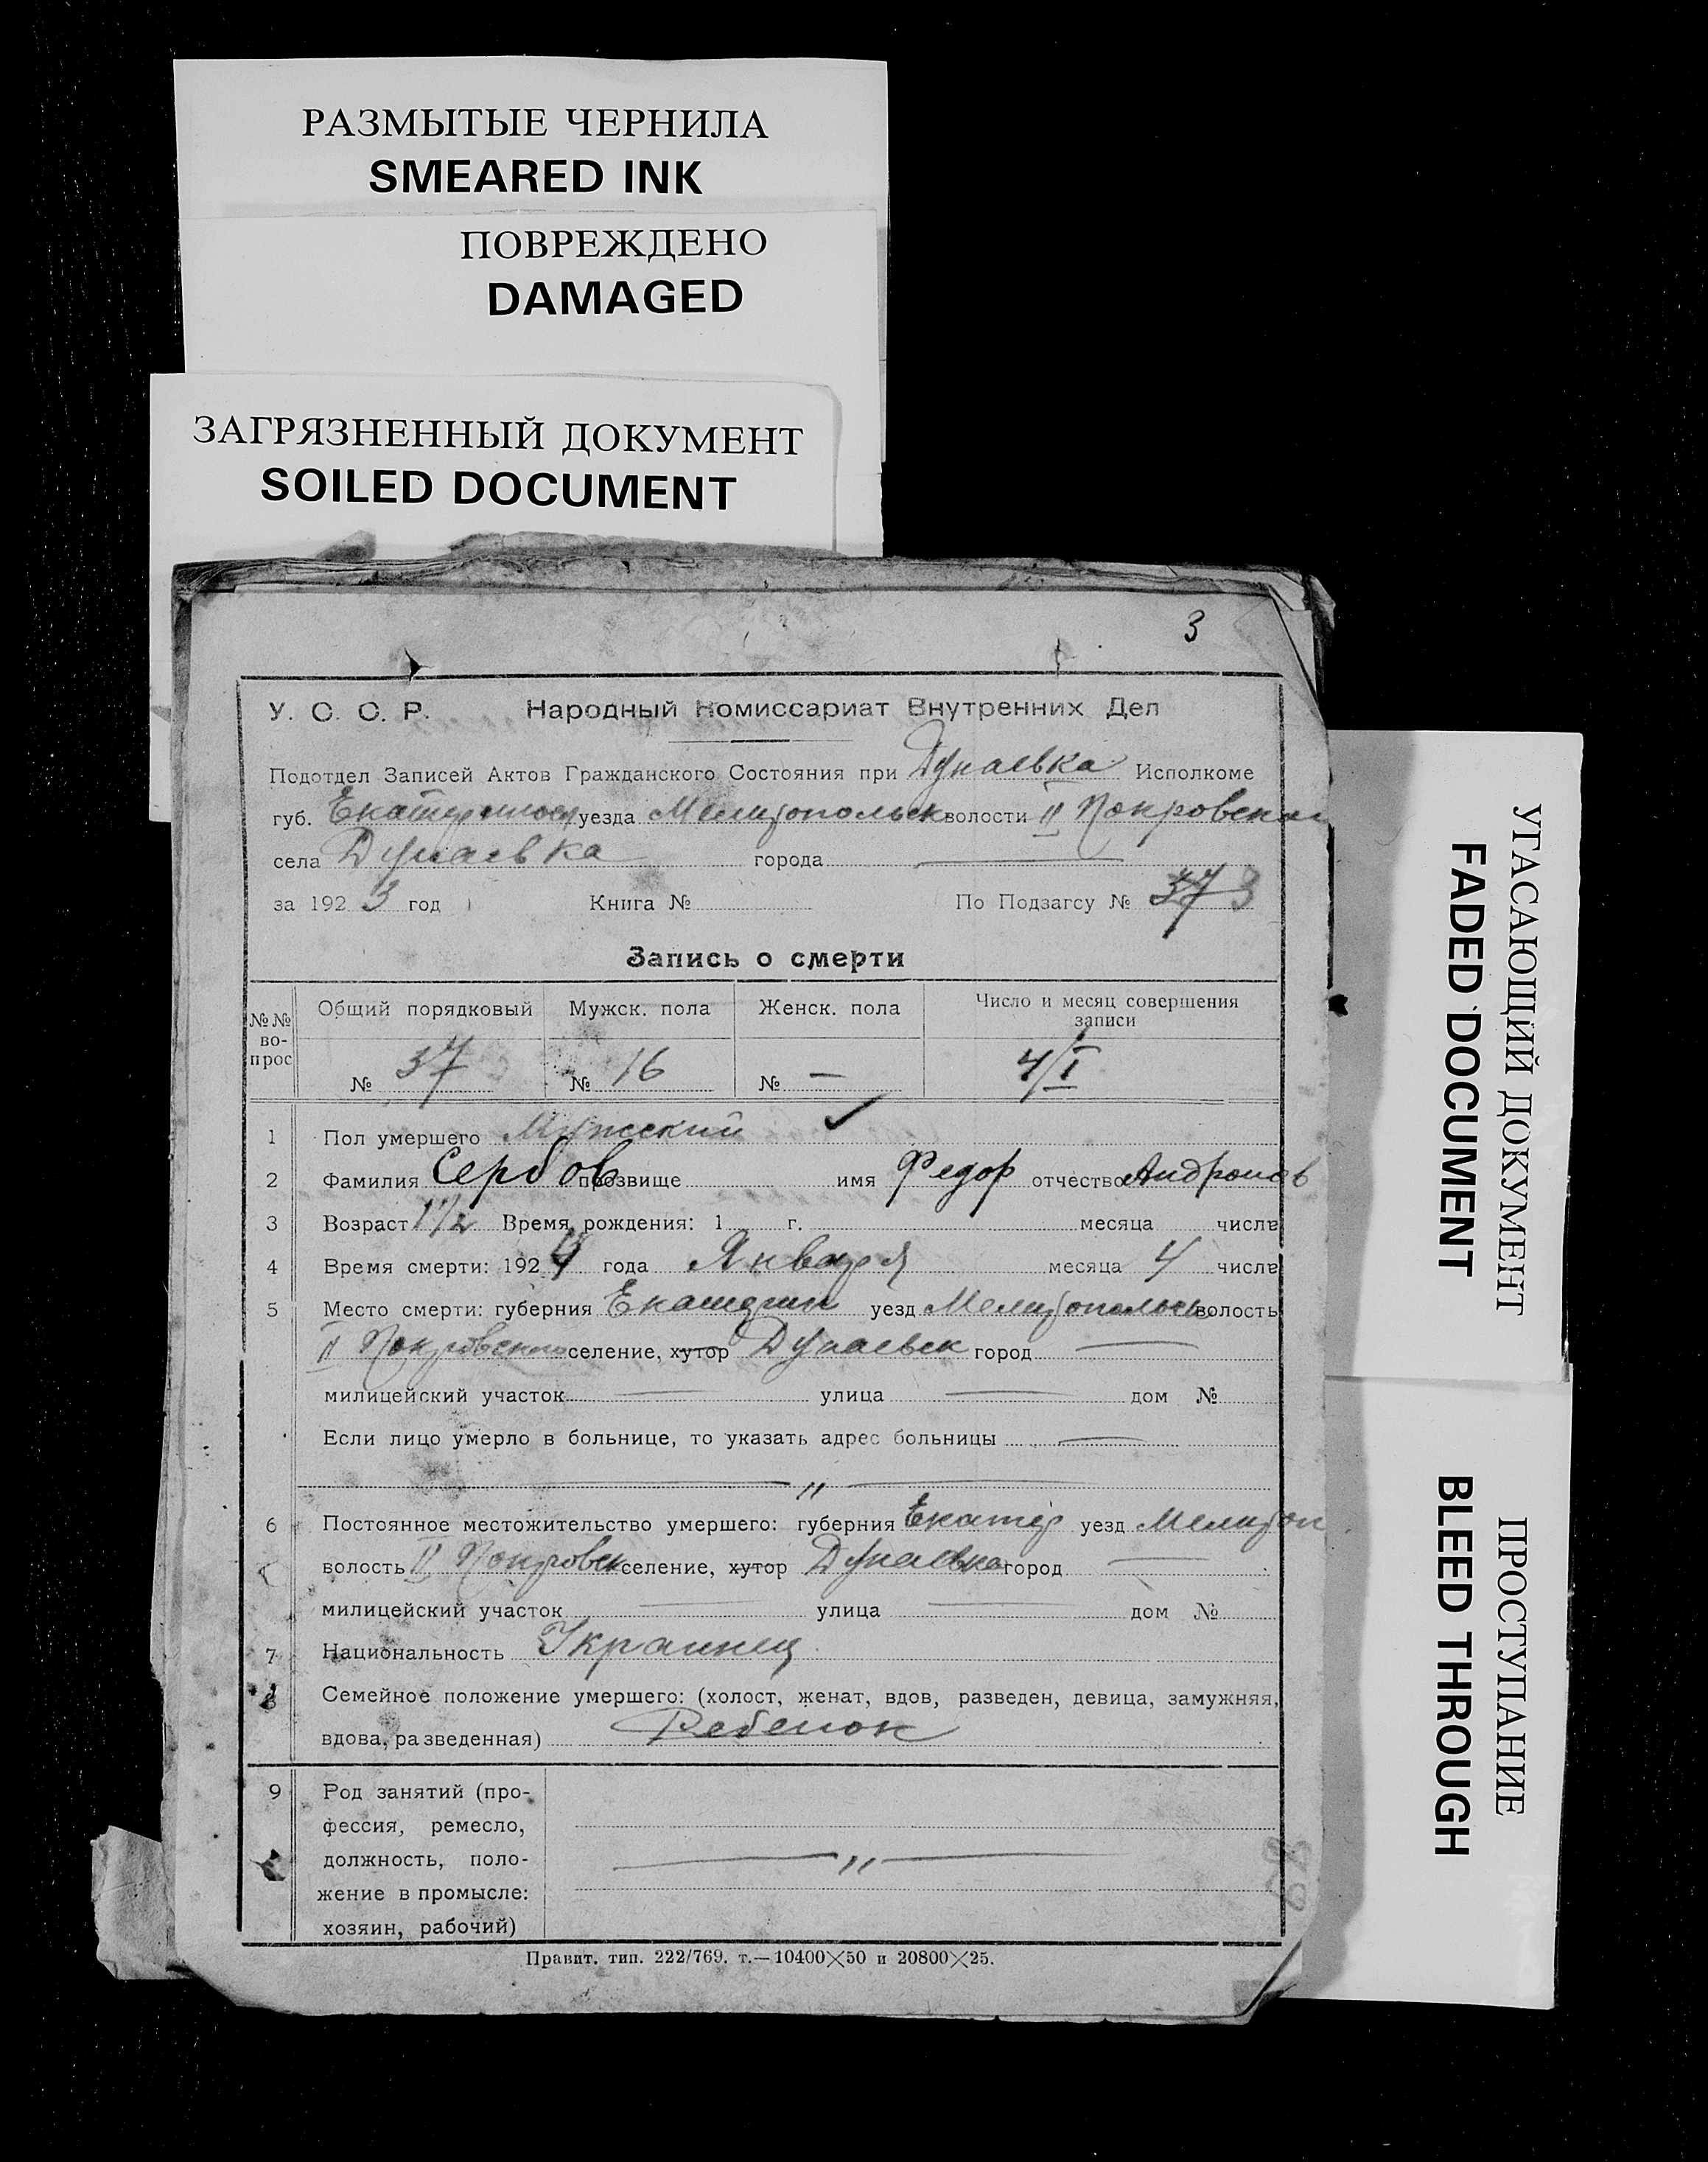 РАЗМЫТЫЕ ЧЕРНИЛА
SMEARED INK
ПОВРЕЖДЕНО
DAMAGED
ЗАГРЯЗНЕННЫЙ ДОКУМЕНТ
SOILED DOCUMENT
3
У. С. С. Р. Народный Комиссариат Внутренних Дел
Подотдел Записей Актов Гражданского Состояния при Дунаевка Исполкоме
губ. Екатериносл уезда Мелитопольск волости II Покровской
села Дунаевка города —
за 1923 год Книга № По Подзагсу № 37 3
Запись о смерти
№№ вопрос Общий порядковый Мужск. пола Женск. пола Число и месяц совершения записи
№ 37 № 16 № — 4/I
1 Пол умершего Мужский ✓
2 Фамилия Сербов прозвище имя Федор отчество Андронов
3 Возраст 1 1/2 Время рождения: 1 г. месяца числа
4 Время смерти: 1924 года Января месяца 4 числа
5 Место смерти: губерния Екатерин уезд Мелитопольск волость
II Покровское селение, хутор Дунаевк город —
милицейский участок — улица — дом №
Если лицо умерло в больнице, то указать адрес больницы —
— „ —
6 Постоянное местожительство умершего: губерния Екатер уезд Мелитоп
волость II Покровск селение, хутор Дунаевка город —
милицейский участок — улица — дом №
7 Национальность Украинец
8 Семейное положение умершего: (холост, женат, вдов, разведен, девица, замужняя,
вдова, разведенная) Ребенок
9 Род занятий (про-
фессия, ремесло,
должность, поло- — „ —
жение в промысле:
хозяин, рабочий)
Правит. тип. 222/769. т.—10400×50 и 20800×25.
УГАСАЮЩИЙ ДОКУМЕНТ
FADED DOCUMENT
ПРОСТУПАНИЕ
BLEED THROUGH